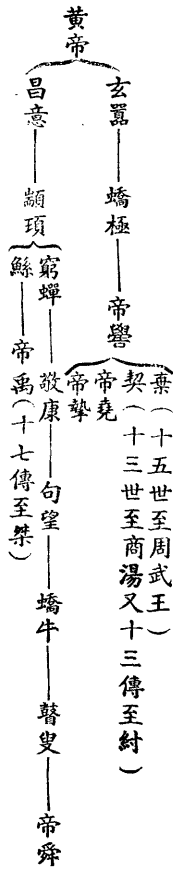 黄帝
玄囂
蟜極
帝嚳
棄（十五世至周武王）
契（十三世至商湯又十三傳至紂）
帝堯
帝摯
昌意
顓頊
窮蟬
敬康
句望
蟜牛
瞽叟
帝舜
鯀
帝禹（十七傳至桀）